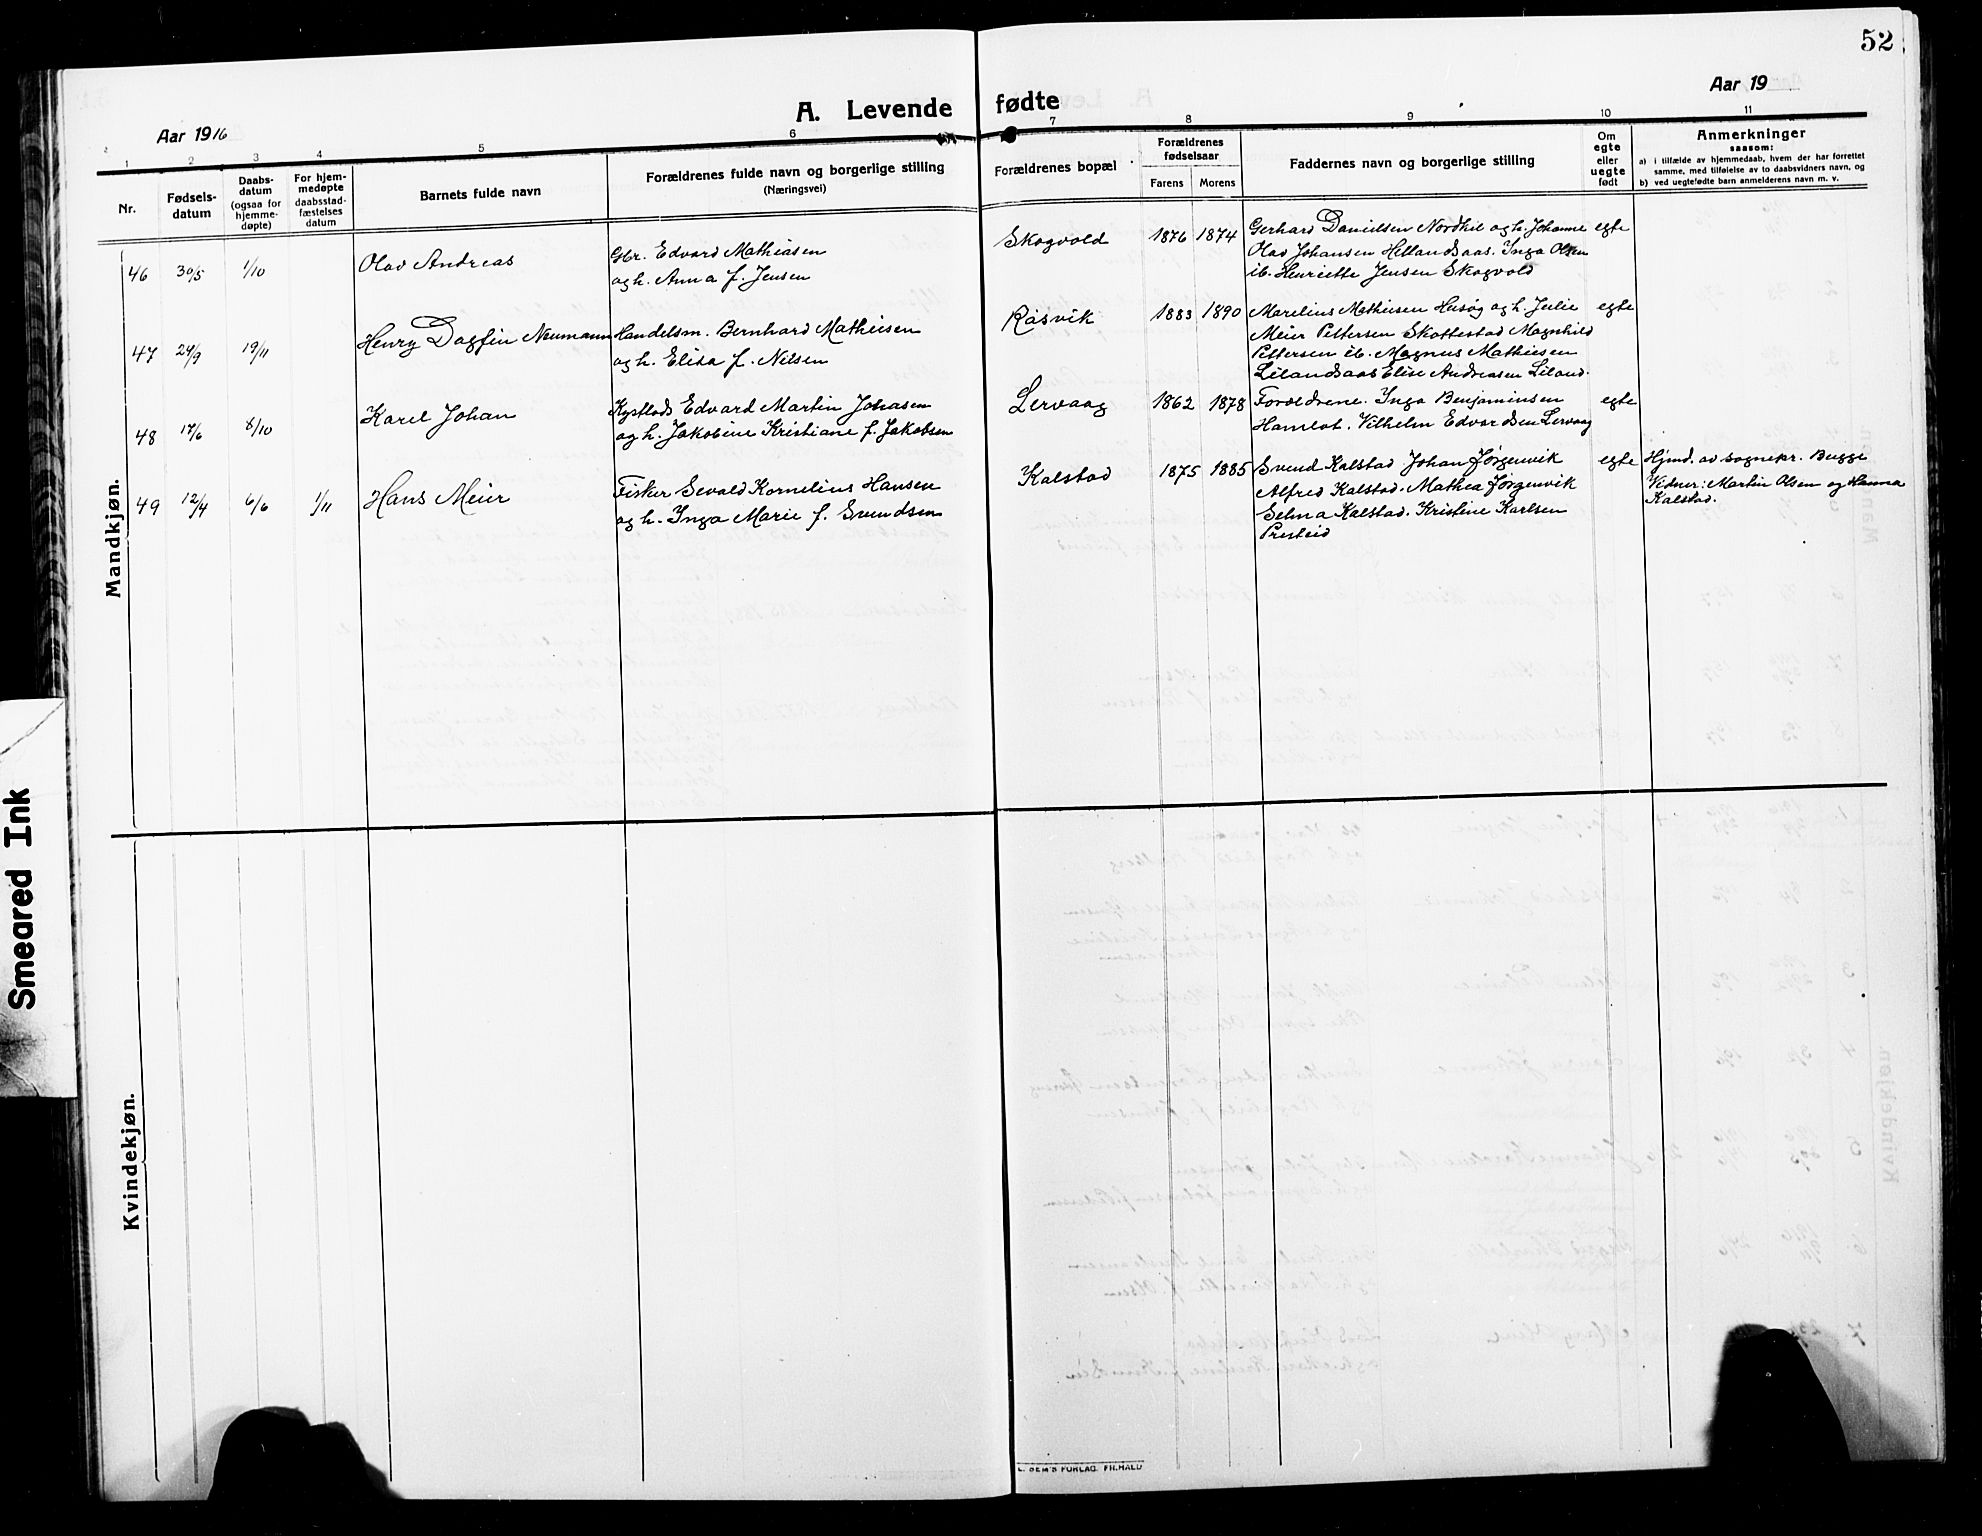 52
Aar 1916
A. Levende fødte
Aar 19
1 2 3 4 5 6 7 8 9 10 11
Nr.
Fødsels-
datum
Daabs-
datum
(ogsaa for
hjemme-
døpte)
For hjem-
medøpte
daabsstad-
fæstelses
datum
Barnets fulde navn
Forældrenes fulde navn og borgerlige stilling
(Næringsvei)
Forældrenes bopæl
Forældrenes
fødselsaar
Farens Morens
Faddernes navn og borgerlige stilling
Om
egte
eller
uegte
født
Anmerkninger
saasom:
a) i tilfælde av hjemmedaab, hvem der har forrettet
samme, med tilføielse av to daabsvidners navn, og
b) ved uegtefødte barn anmelderens navn m. v.
Mandkjøn.
46 30/5 1/10 Olav Andreas
Gbr. Edvard Mathiasen
og h. Anna f. Jensen
Skogvold 1876 1874
Gerhard Danielsen Nordkil og h. Johanne
Olav Johansen Hellandsaas. Inga Olsen
ib. Henriette Jensen Skogvold
egte
47 24/9 19/11 Henry Dagfin Neumann
Handelsm. Bernhard Mathiesen
og h. Elisa f. Nilsen
Råsvik 1883 1890
Marelius Mathisen Husøy og h. Julie
Meier Pettersen Skottestad Magnhild
Pettersen ib. Magnus Mathiesen
Lilandsaas Elise Andreasen Liland.
egte
48 17/6 8/10 Karel Johan
Edvard Martin Johasen
og h. Jakobine Kristiane f. Jakobsen
Lervaag 1862 1878
Forældrene. Inga Benjaminsen
Hamlot. Vilhelm Edvardsen Lervaag
egte
49 12/4 6/6 1/11 Hans Meier
Fisker Sevald Kornelius Hansen
og h. Inga Marie f. Svendsen
Kalstad 1875 1885
Svend Kalstad Johan Jørgenvik
Alfred Kalstad. Mathea Jørgenvik
Selma Kalstad. Kristine Karlsen
Presteid
egte
Hjmd. av sognepr. Bugge
Vidner: Martin Olsen og Hanna
Kalstad.
Kvindekjøn.
Smeared Ink
SEM'S FORLAG. FR.HALD